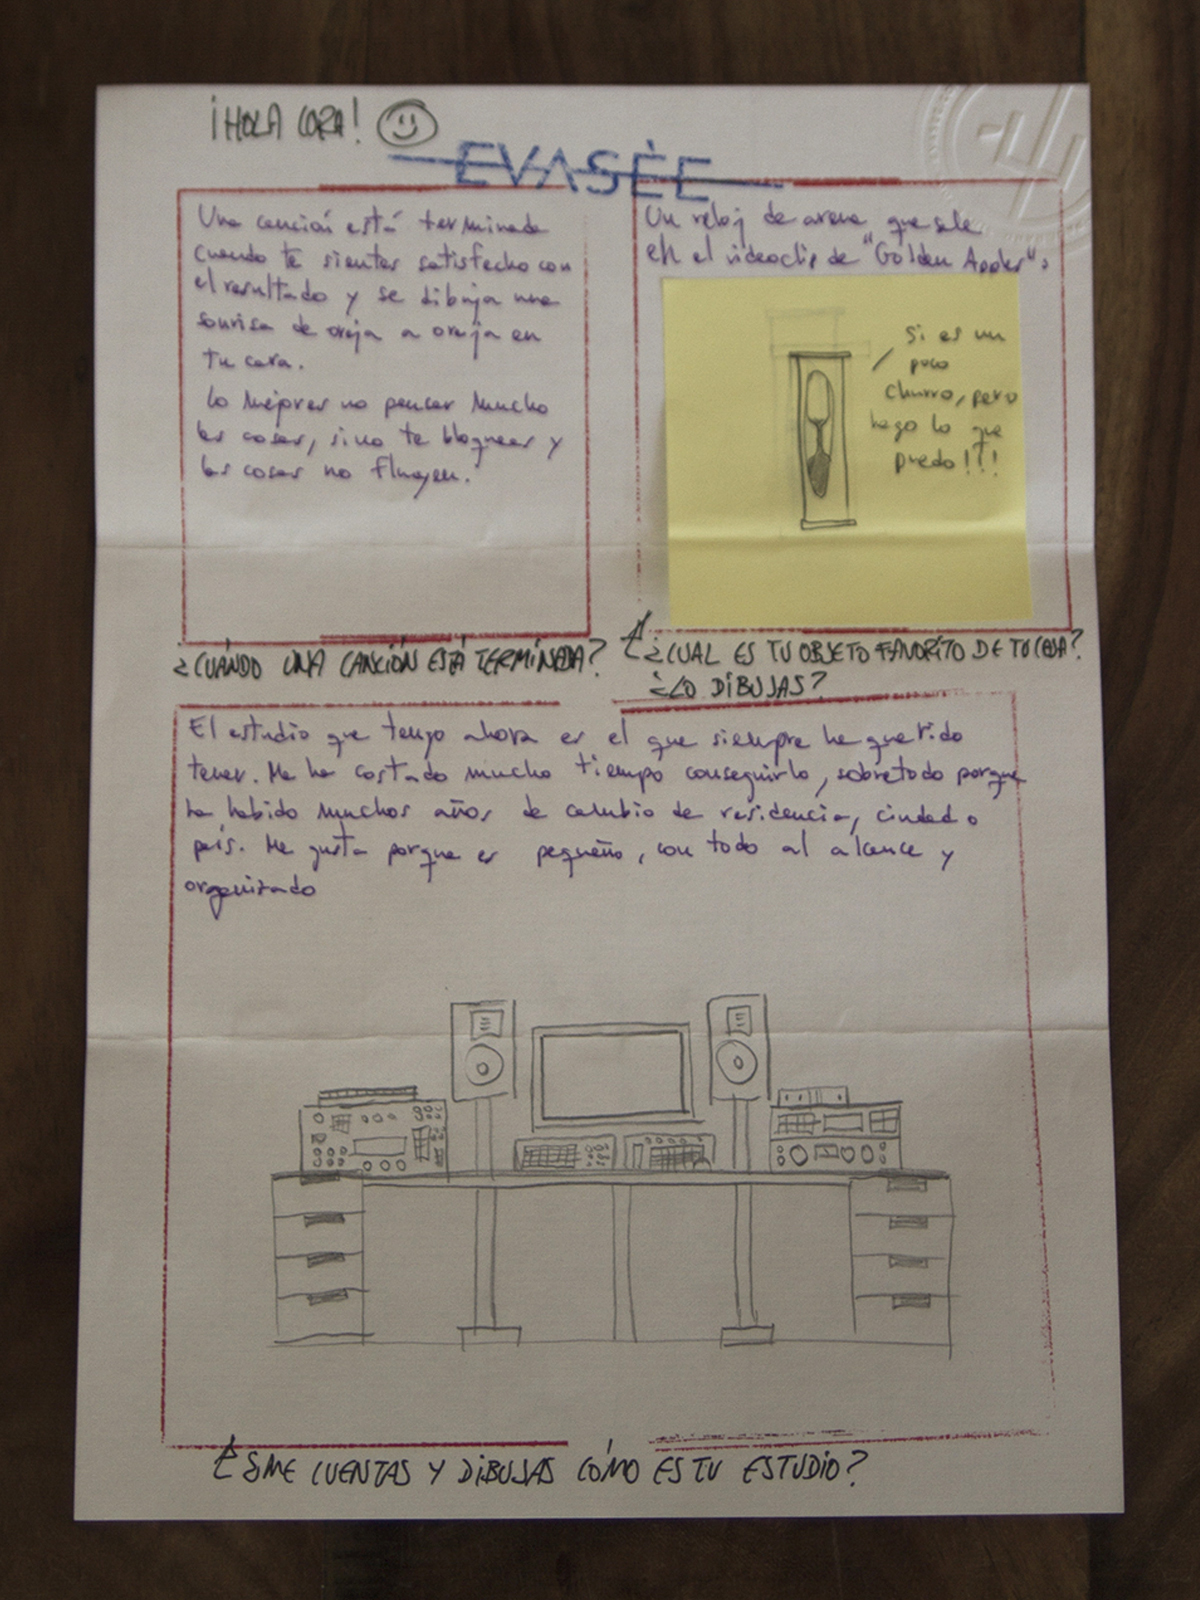 ¡HOLA CORA!
EVASÈE
Una canción está terminada
cuando te sientes satisfecho con
el resultado y se dibuja una
sonrisa de oreja a oreja en
tu cara.
Lo mejor es no pensar mucho
las cosas, sino te bloqueas y
las cosas no fluyen.
¿CUÁNDO UNA CANCIÓN ESTÁ TERMINADA?
Un reloj de arena que sale
en el videoclip de "Golden Apples".
Si es un
poco
churro, pero
hago lo que
puedo!!!
¿CUAL ES TU OBJETO FAVORITO DE TU CASA?
¿LO DIBUJAS?
El estudio que tengo ahora es el que siempre he querido
tener. Me ha costado mucho tiempo conseguirlo, sobretodo porque
ha habido muchos años de cambio de residencia, ciudad o
país. Me gusta porque es pequeño, con todo al alcance y
organizado
¿ME CUENTAS Y DIBUJAS CÓMO ES TU ESTUDIO?